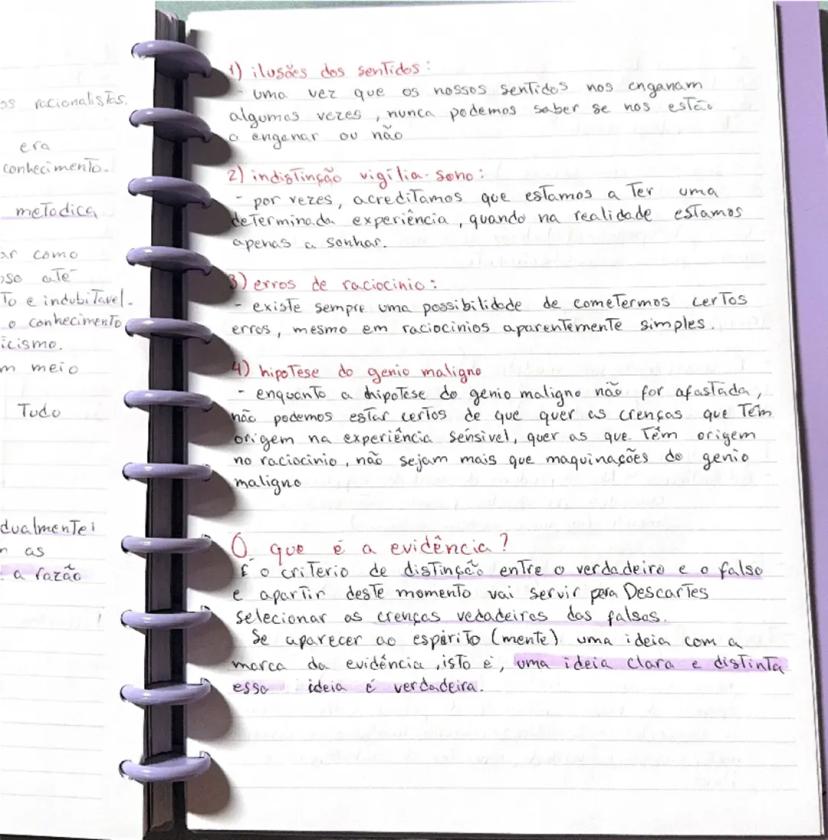 os racionalistas.
era
conhecimento.
metodica
ar como
oso até
To e indubitavel.
o conhecimento
icismo.
m meio
Tudo
dualmente i
n as
a razão
1) ilusões dos sentidos:
- uma vez que os nossos sentidos nos enganam
algumas vezes, nunca podemos saber se nos estão
a enganar ou não
2) indistinção vigília-sono:
- por vezes, acreditamos que estamos a ter uma
determinada experiência, quando na realidade estamos
apenas a sonhar.
3) erros de raciocinio:
- existe sempre uma possibilidade de cometermos certos
erros, mesmo em raciocinios aparentemente simples.
4) hipotese do genio maligno
- enquanto a hipotese do genio maligno não for afastada,
não podemos estar certos de que quer as crenças que têm
origem na experiência sensivel, quer as que têm origem
no raciocinio, não sejam mais que maquinações do genio
maligno
O que é a evidência?
É o criterio de distinção entre o verdadeiro e o falso
e apartir deste momento vai servir pera Descartes
selecionar as crenças vedadeiras das falsas.
Se aparecer ao espirito (mente) uma ideia com a
marca da evidência, isto é, uma ideia clara e distinta
essa ideia é verdadeira.